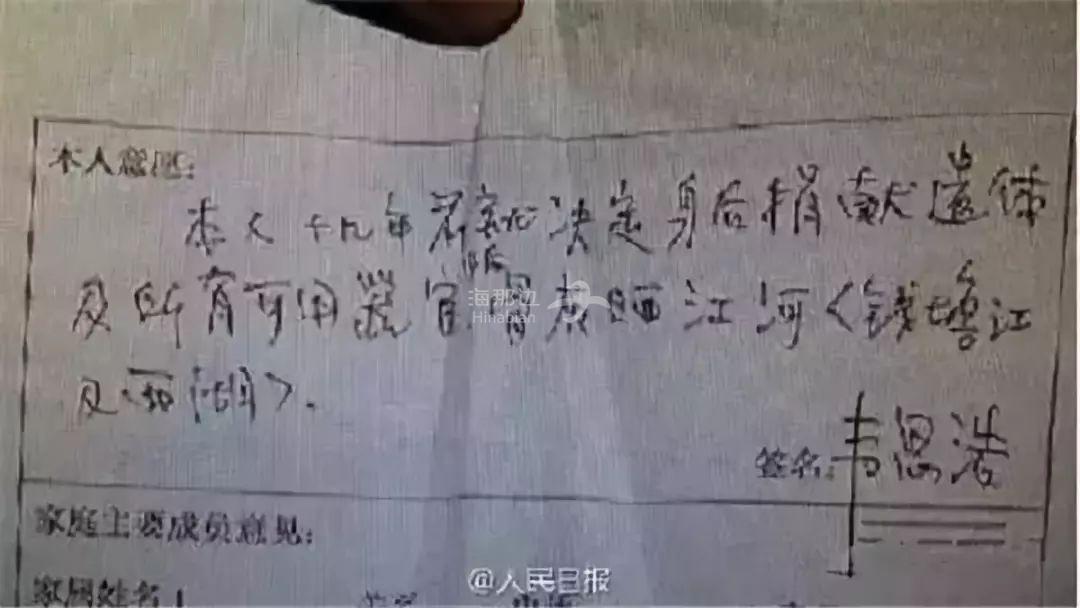 本人意愿:
本人十几年前就决定身后捐献遗体
及所有可用器官 骨灰晒江河〈钱塘江
及西湖〉.
签名:韦思浩
家庭主要成员意见:
家属姓名
海那边
Hinabian
@人民日报